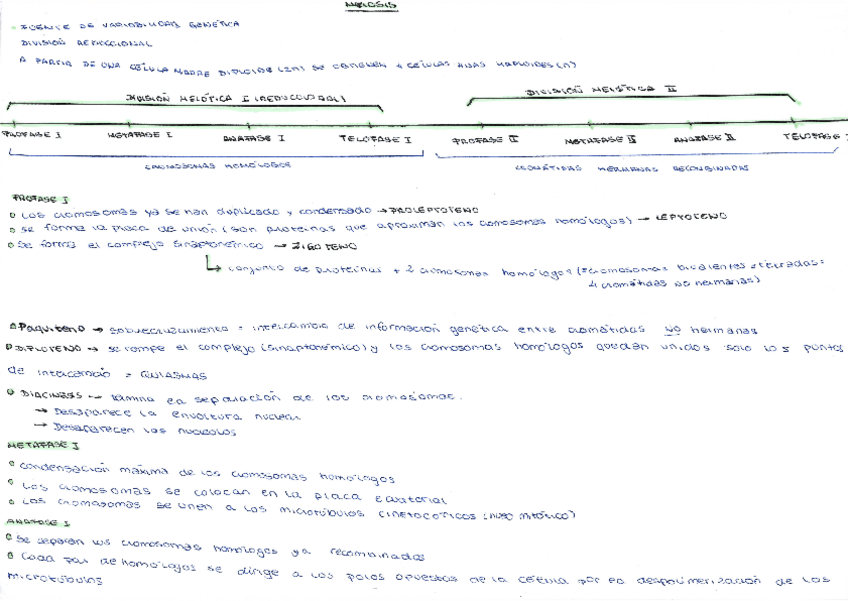 MEIOSIS
FUENTE DE VARIABILIDAD GENÉTICA
DIVISIÓN REDUCCIONAL
A PARTIR DE UNA CÉLULA MADRE DIPLOIDE (2n) SE CONSIGUEN 4 CÉLULAS HIJAS HAPLOIDES (n)
DIVISIÓN MEIÓTICA I (REDUCCIONAL)
DIVISIÓN MEIÓTICA II
PROFASE I METAFASE I ANAFASE I TELOFASE I PROFASE II METAFASE II ANAFASE II TELOFASE I
CROMOSOMAS HOMÓLOGOS
CROMÁTIDAS HERMANAS RECOMBINADAS
PROFASE I
Los cromosomas ya se han duplicado y condensado → PROLEPTOTENO
Se forma la placa de unión (son proteínas que aproximan los cromosomas homólogos) → LEPTOTENO
Se forma el complejo sinaptonémico → ZIGOTENO
conjunto de proteínas + 2 cromosomas homólogos (= cromosomas bivalentes = tétradas =
4 cromátidas no hermanas)
Paquiteno → sobrecruzamiento = intercambio de información genética entre cromátidas NO hermanas
DIPLOTENO → se rompe el complejo (sinaptonémico) y los cromosomas homólogos quedan unidos solo los puntos
de intercambio = QUIASMAS
DIACINESIS → termina la separación de los cromosomas.
→ Desaparece la envoltura nuclear
→ Desaparecen los nucleolos
METAFASE I
condensación máxima de los cromosomas homólogos
Los cromosomas se colocan en la placa ecuatorial
Los cromosomas se unen a los microtúbulos cinetocóricos (huso mitótico)
ANAFASE I
Se separan los cromosomas homólogos ya recombinados
Cada par de homólogos se dirige a los polos opuestos de la célula por la despolimerización de los
microtúbulos